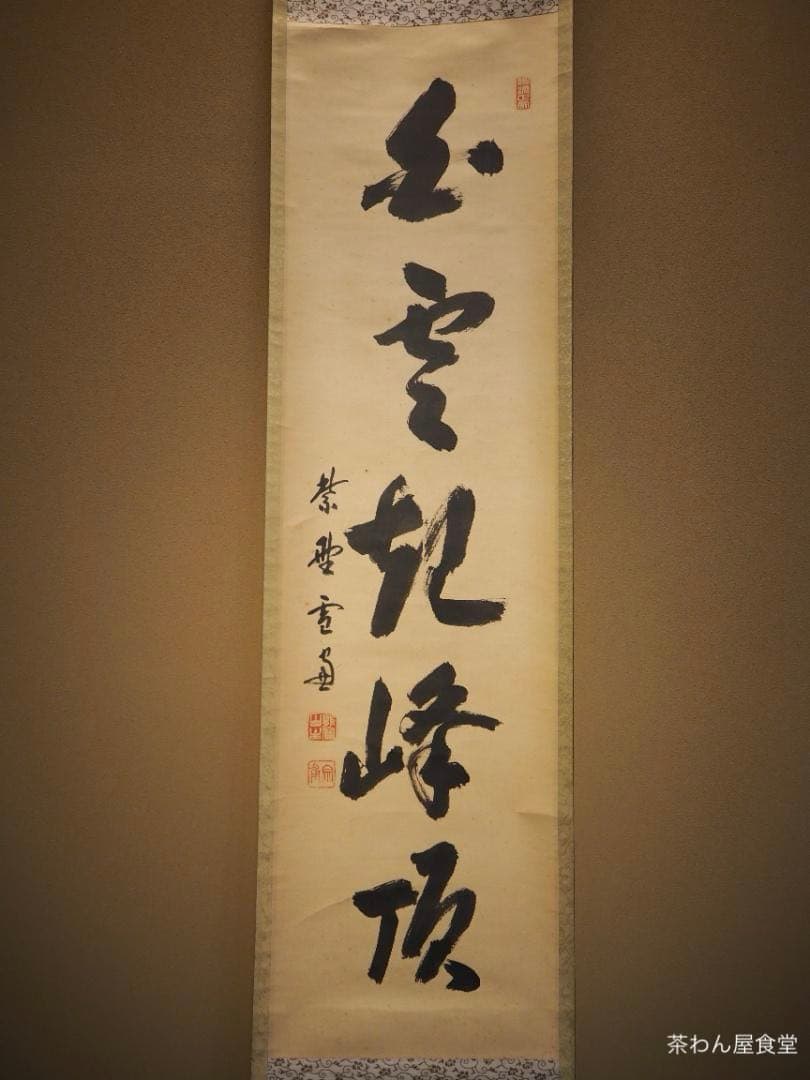 白雲起峰頂
紫野雪窓
茶わん屋食堂